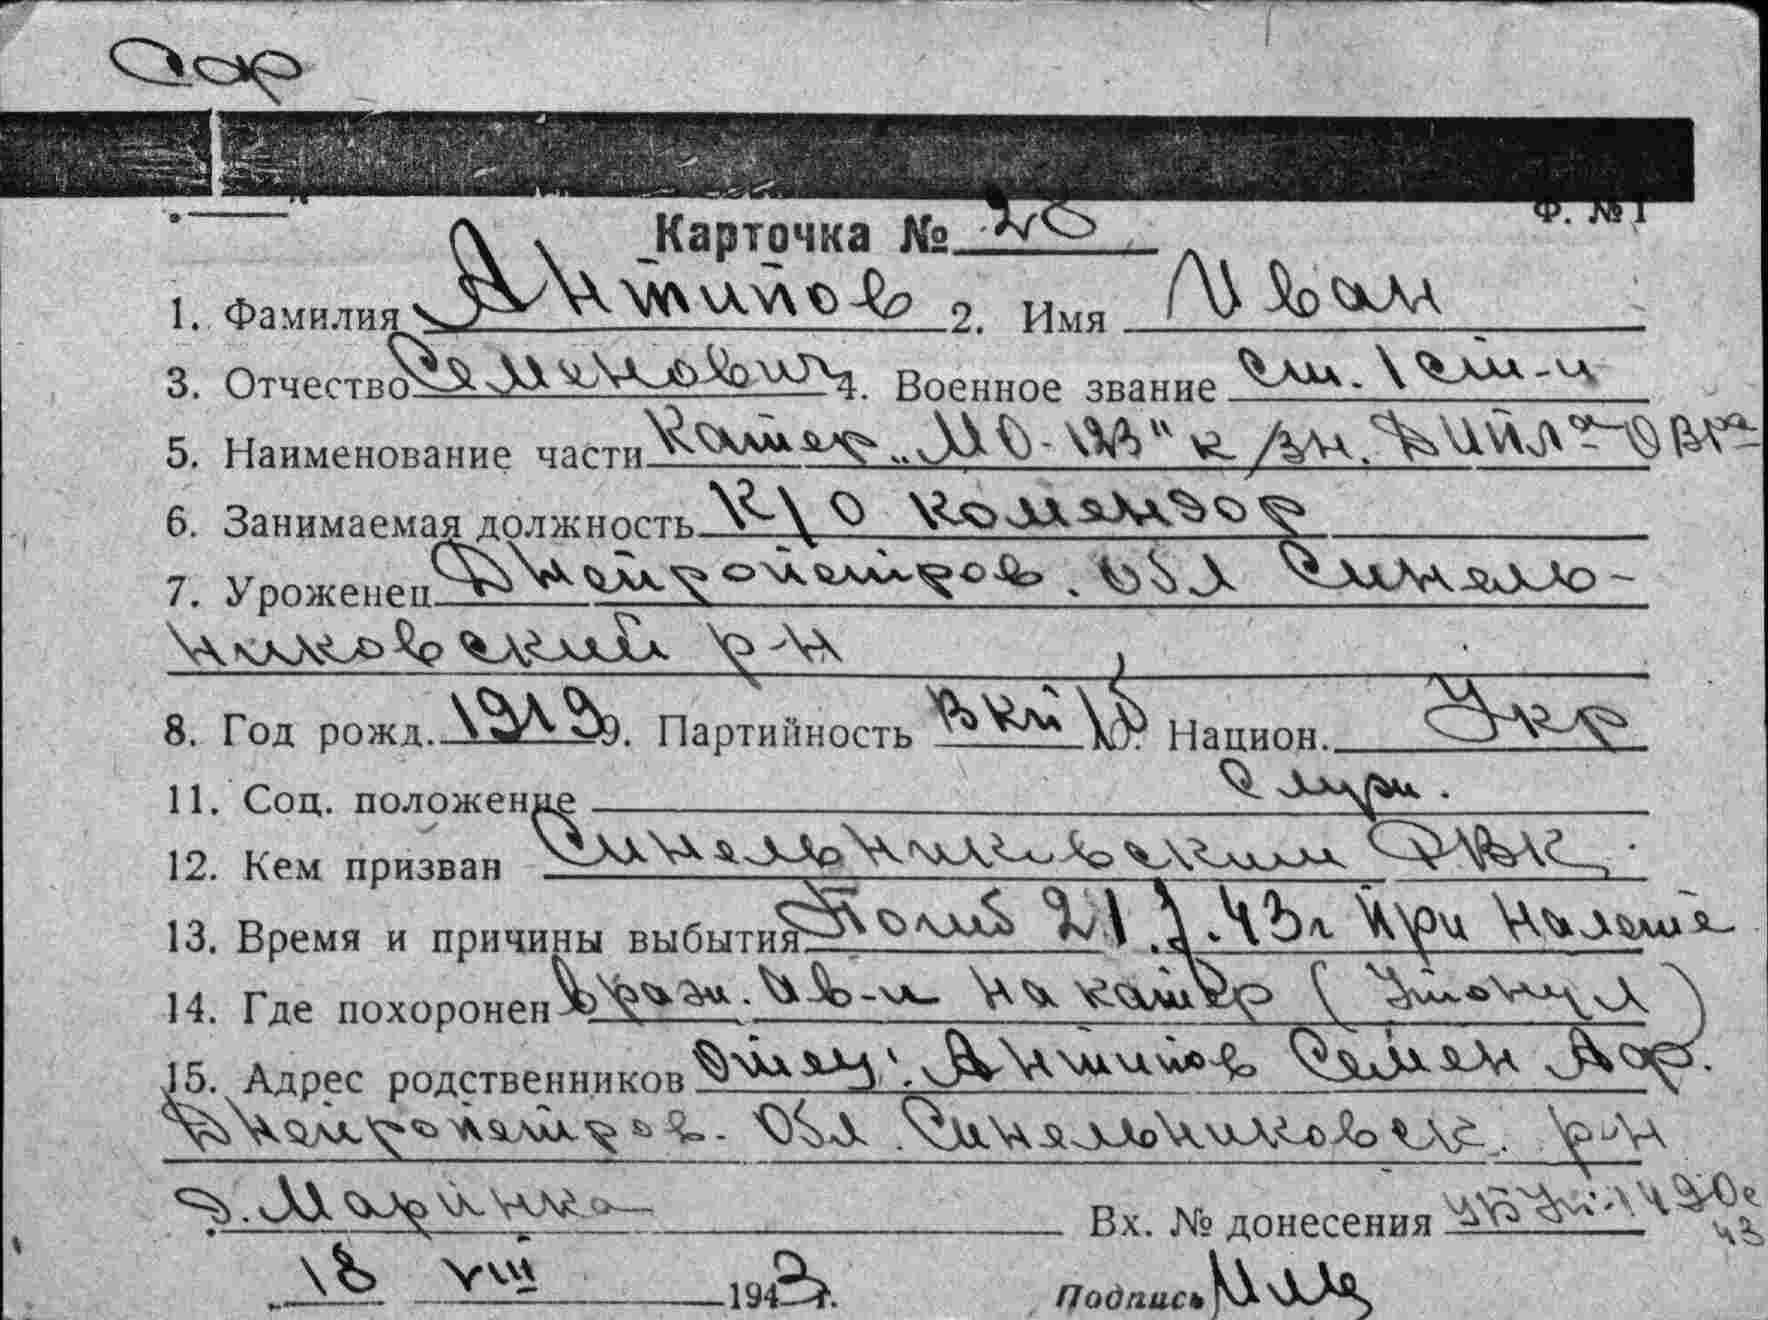 Ф. №1
Карточка № 26
1. Фамилия Антипов 2. Имя Иван
3. Отчество Семенович 4. Военное звание
5. Наименование части Катер „МО-
6. Занимаемая должность К/О комендор
7. Уроженец Днепропетров. обл Синель-
никовский р-н
8. Год рожд. 1919 9. Партийность ВКП(б) Национ. Укр
11. Соц. положение Служ.
12. Кем призван Синельниковским РВК
13. Время и причины выбытия Погиб 21 .43г при налете
14. Где похоронен враж. ав-и на катер (Утонул)
15. Адрес родственников Отец: Антипов Семен
Днепропетров. обл. Синельниковск. р-н
д. Маринка Вх. № донесения
18 VIII 1943г. Подпись